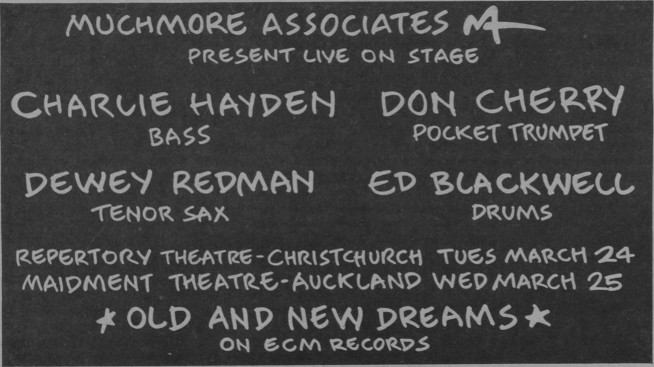 MUCHMORE ASSOCIATES MA
PRESENT LIVE ON STAGE
CHARLIE HAYDEN DON CHERRY
BASS POCKET TRUMPET
DEWEY REDMAN ED BLACKWELL
TENOR SAX DRUMS
REPERTORY THEATRE-CHRISTCHURCH TUES MARCH 24
MAIDMENT THEATRE-AUCKLAND WED MARCH 25
★ OLD AND NEW DREAMS ★
ON ECM RECORDS